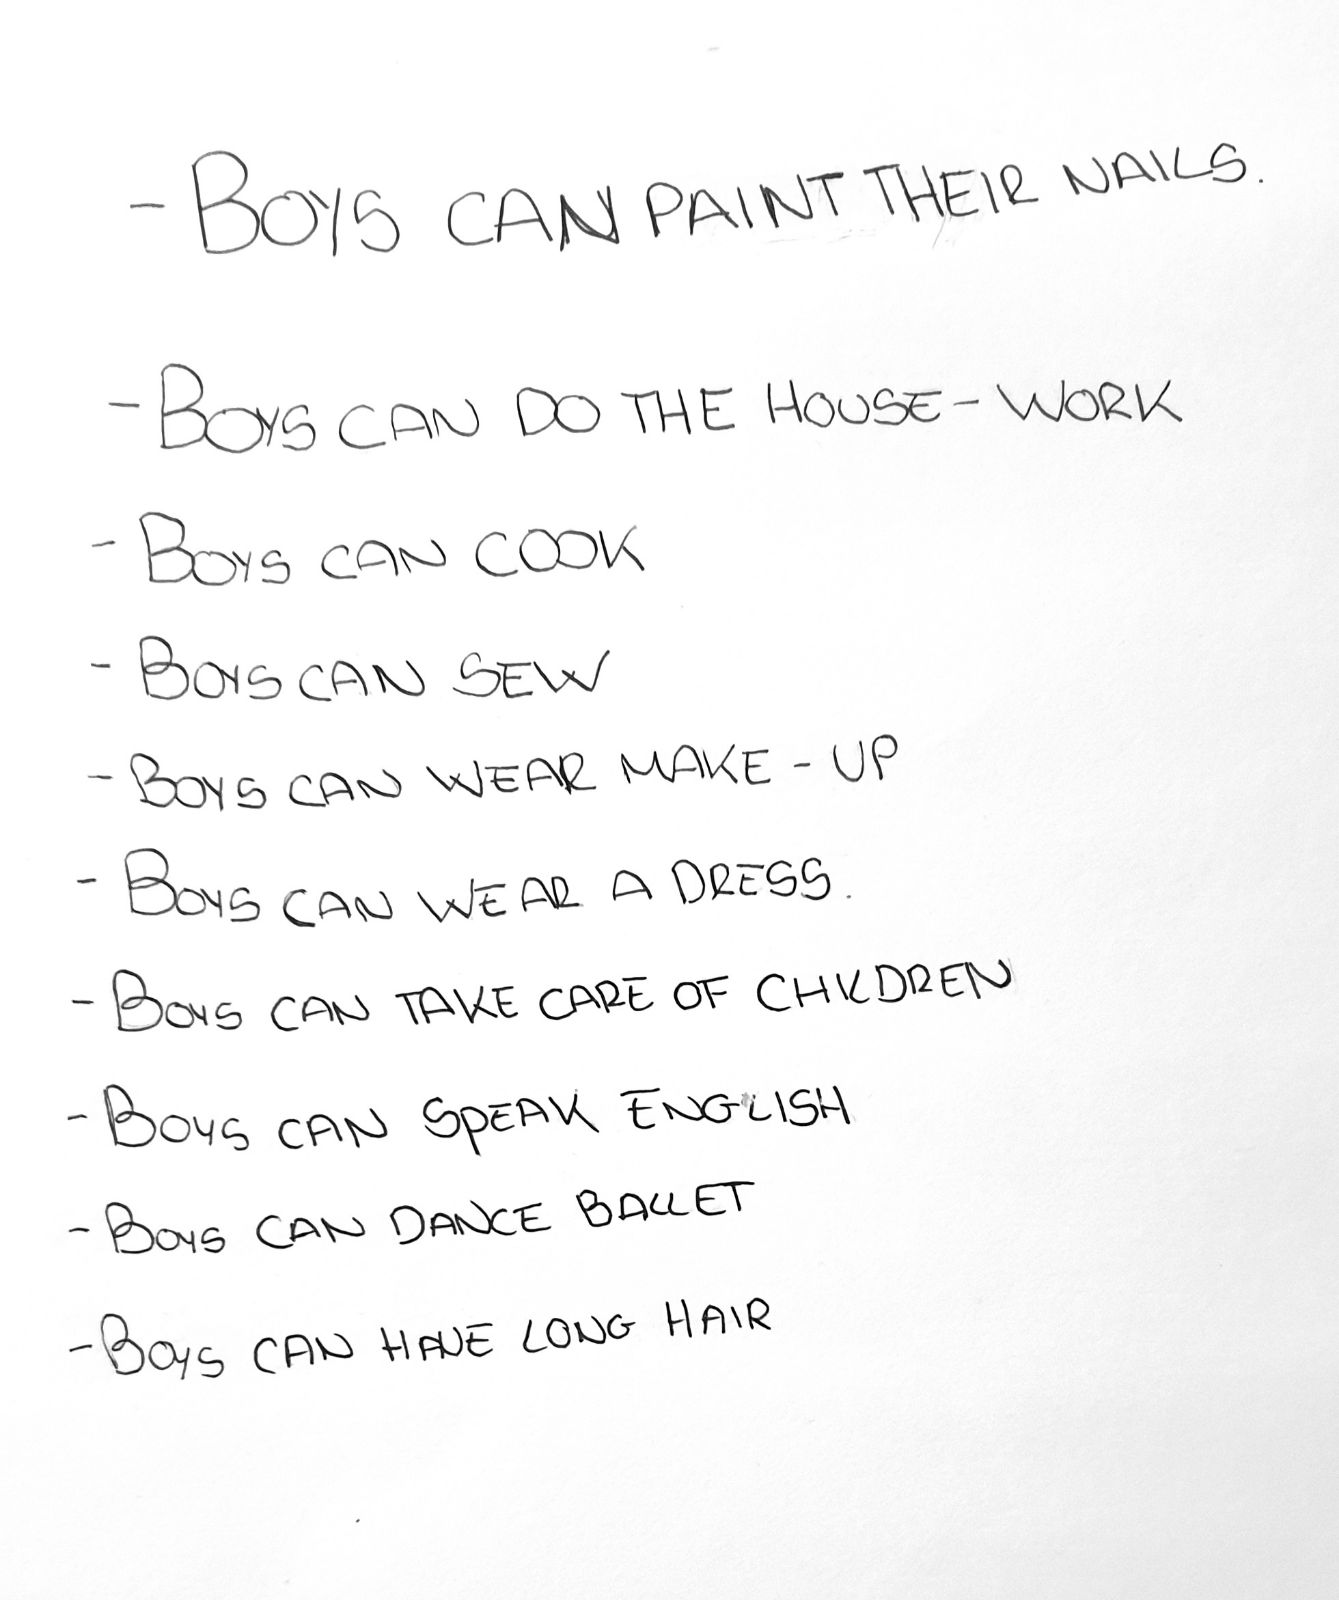 - BOYS CAN PAINT THEIR NAILS.
- BOYS CAN DO THE HOUSE-WORK
- BOYS CAN COOK
- BOYS CAN SEW
- BOYS CAN WEAR MAKE-UP
- BOYS CAN WEAR A DRESS.
- BOYS CAN TAKE CARE OF CHILDREN
- BOYS CAN SPEAK ENGLISH
- BOYS CAN DANCE BALLET
- BOYS CAN HAVE LONG HAIR